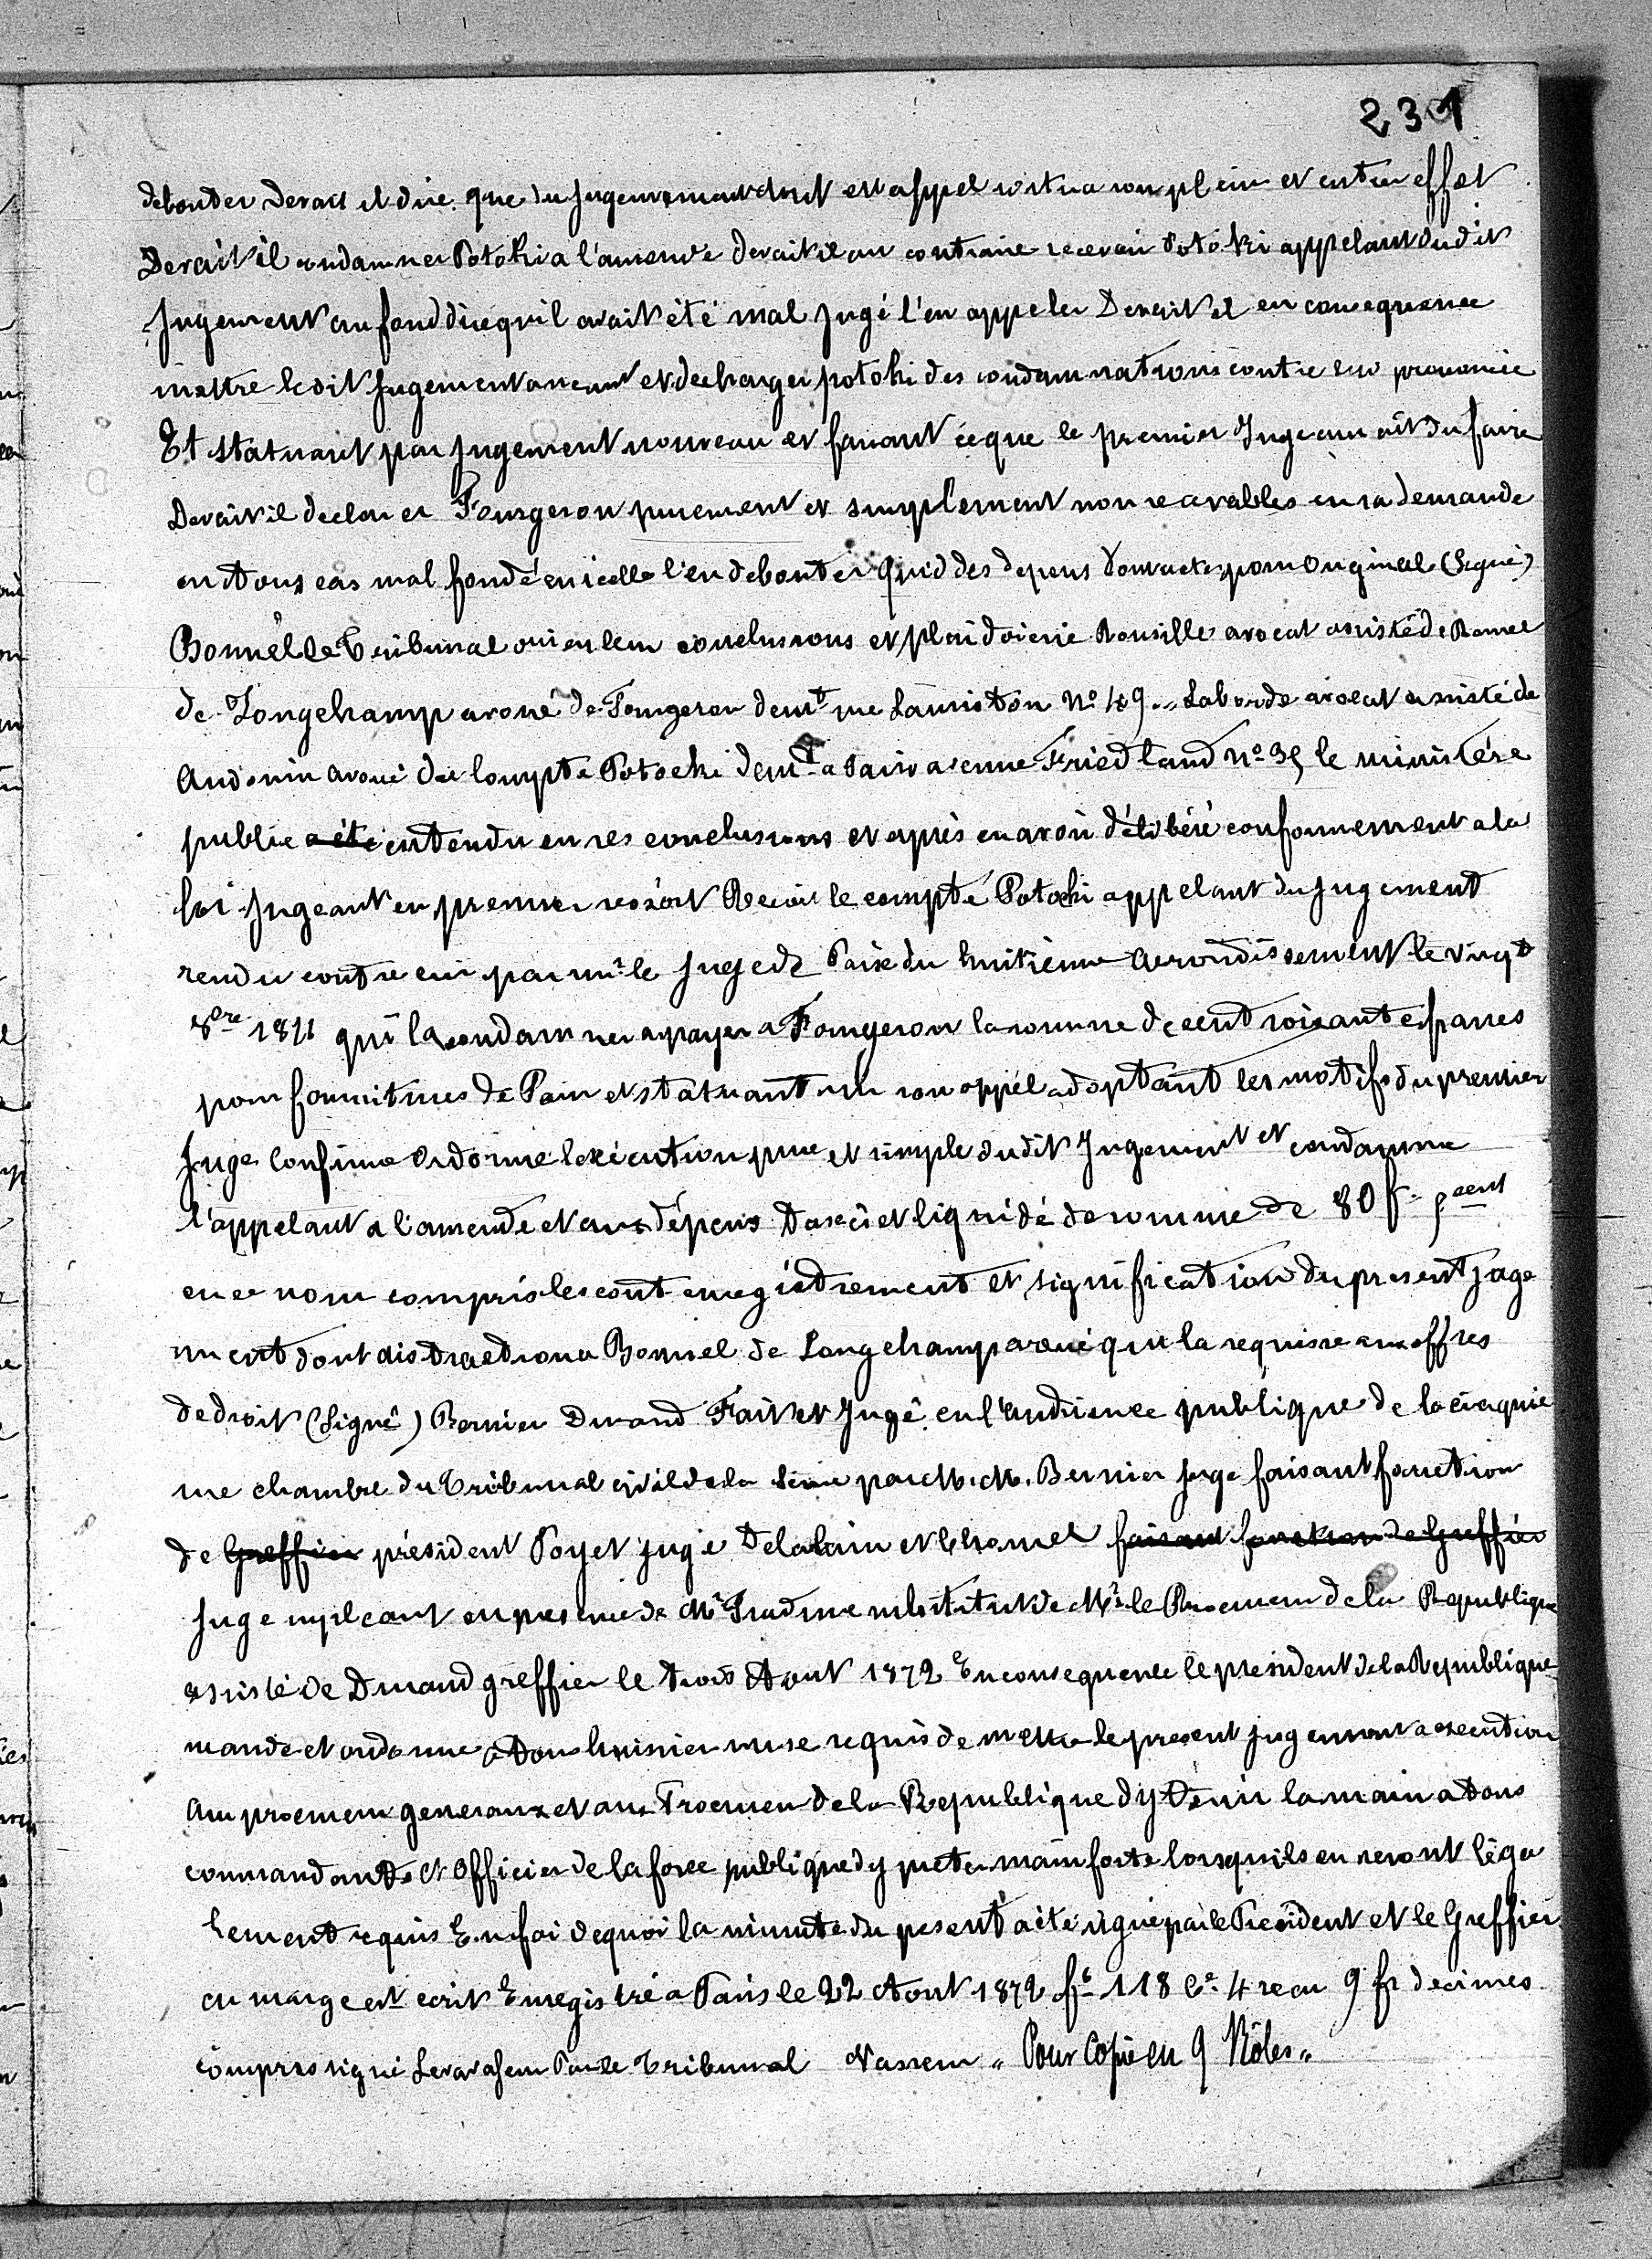 231
debouter Devait il dire que du Jugement dont est appel sortira son plein et entier effet
Devait il condamner Potoki a l'amende devait il au contraire recevoir Potoki appelant dudit
Jugement au fond dire qu'il avait été mal Jugé l'en appeler Devait il en consequence
mettre ledit Jugement aneant et decharger potoki des condamnations contre lui prononcée
Et statuant par Jugement nouveau et faisant ce que le premier Juge aurait du faire
Devait il declarer Fougeron purement et simplement non recevables en sa demande
en tous cas mal fondé en icelle l'en debouter Quid des depens Dont acte pour Original (Signé)
Bonnel Le Tribunal oui en leur conclusions et plaidoierie Rousille avocat assisté de Bonnel
de Longchamp avoué de Fougeron demt rue Lauriston No 49 „ Laborde avocat assisté de
Audouin avoué du Compte Potocki demt a Paris avenue Friedland No 35 le ministére
public a été entendu en ses conclusions et aprés en avoir délibéré conformement a la
loi Jugeant en premier resort Recoit le compte Potocki appelant du Jugement
rendu contre lui par mr le Juge de Paix du huitieme Arrondissement le vingt
8bre 1871 qui la condamner a payer a Fougeron la somme de cent soixante francs
pour fournitures de Pain et statuant sur son appel adoptant les motifs du premier
Juge Confirme Ordonne l'exécution pure et simple dudit Jugement et condamne
l'appelant a l'amende et aux dépens Taxés et liquidé de somme de 80 f. pcent
en ce nom compris les cout enregistrement et signification du present Juge
ment dont distraction a Bonnel de Longchamp avoué qui la requise aux offres
de droit (Signé) Bernier Durand Fait et Jugé en l'audience publique de la cinquie
me chambre du Tribunal civil de la Seine par M. M. Bernier Juge faisant fonction
de Greffier président Poyet juge Delalain et Chomel faisant fonction de Greffier
Juge supleant en presence de Mr substitut de Mr le Procureur de la Republique
assisté de Durand greffier le trois Aout 1872 En consequence le president de la Republique
mande et ordonne a Tous huissier sur se requis de mettre le present Jugement a execution
Aux procureur generaux et aux Procureur de la Republique d'y Tenir la main a Tous
commandants et Officier de la force publique d'y preter main forte lorsquils en seront léga
lement requis En foi de quoi la minute du present a été signé par le President et le Greffier
en marge est ecrit Enregistré a Paris le 22 Aout 1872 fo 118 Ce 4 recu 9 fr decimes
compris signé Par le Tribunal „ Pour Copie en 9 Rôles „